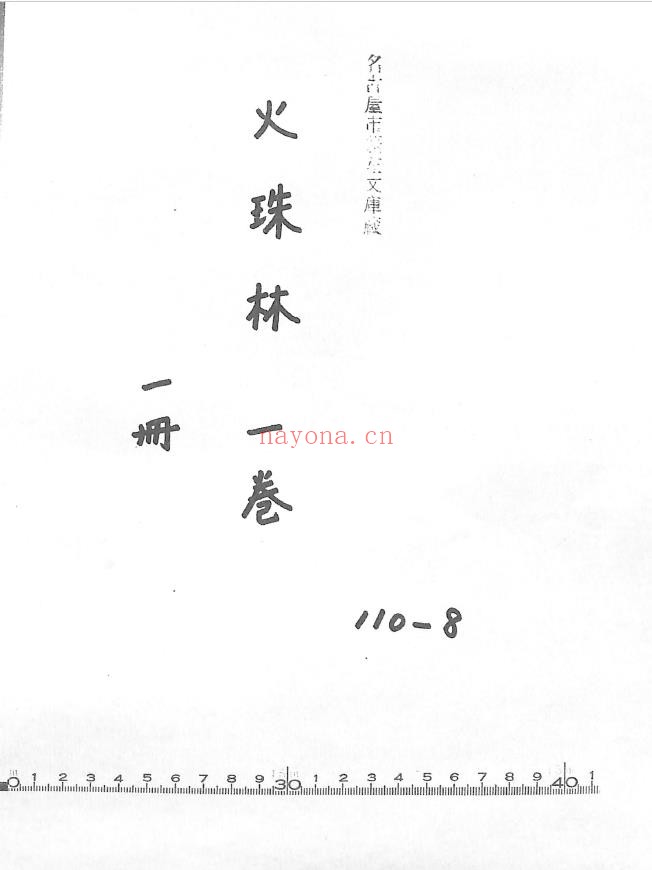 名古屋市蓬左文庫蔵
火珠林 一巻
一冊
nayona.cn
110-8
0 1 2 3 4 5 6 7 8 9 30 1 2 3 4 5 6 7 8 9 40 1